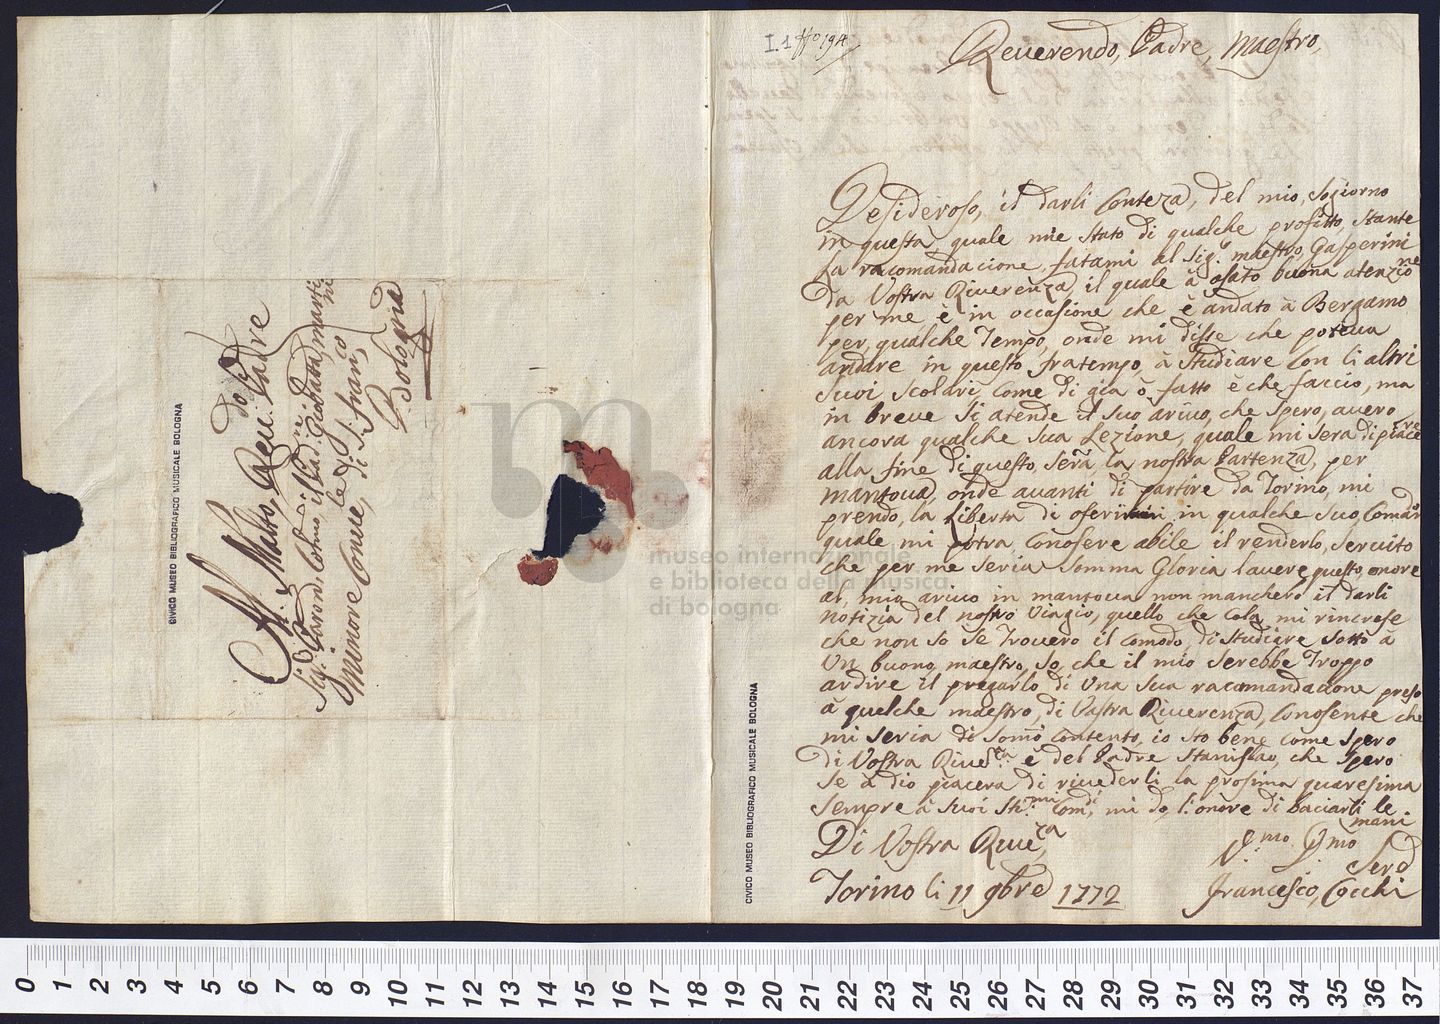 Reuerendo, Padre, Maestro,
Desideroso, il darli Conteza, del mio, Sogiorno
in questa, quale mie stato di qualche profitto, stante
la racomandacione, fatami al Sigr. maestro, Gasperini
da Vostra Riuerenza, il quale à usato buona atenzione
per me, è in occasione che è andato à Bergamo
per, qualche Tempo, onde mi disse che poteua
andare in questo fratempo, à Studiare Con li altri
Suoi Scolari, Come di già ò fatto è che faccio, ma
in breue Si atende il Suo ariuo, che Spero, auero
ancora qualche Sua Lezione, quale mi Sera di piacere
alla fine di questo, Serà, la nostra Partenza, per
mantoua, onde auanti di partire da Torino, mi
prendo, la Liberta di oferirmi in qualche Suo, Coman
quale mi potra Conosere abile il renderlo, Seruito
che per me Seria Somma Gloria lauere questo, onore
al, mio ariuo in mantoua non manchero il darli
notizia del nostro Viagio, quello che Cola mi rincrese
che non so Se Trouero il Comodo di Studiare Sotto à
Un buono, maestro, So, che il mio Serebbe Troppo
ardire il pregarlo di Una Sua racomandacione preso
à quelche maestro, di Vostra Riuerenza, Conosente che
mi Seria di Somo Contento, io sto bene Come Spero
di Vostra Riueza è del Padre Stanislao, che Spero
Se à dio piacera di riuederli la prosima quaresima
Sempre à Suoi Stimi Comdi, mi do l'onore di baciarli le
mani
Di Vostra Riueza,
Vmo Dmo
Sero
Torino li 11 9bre 1772
Francesco, Cocchi
Al Molto, Reu: Padre
Sigr Paroni, Colmo, il Padre: Giobatta, martini
Minore Conue, di S: franco,
Bologna
I.1 194
CIVICO MUSEO BIBLIOGRAFICO MUSICALE BOLOGNA
CIVICO MUSEO BIBLIOGRAFICO MUSICALE BOLOGNA
m
museo internazionale
e biblioteca della musica
di bologna
0 1 2 3 4 5 6 7 8 9 10 11 12 13 14 15 16 17 18 19 20 21 22 23 24 25 26 27 28 29 30 31 32 33 34 35 36 37